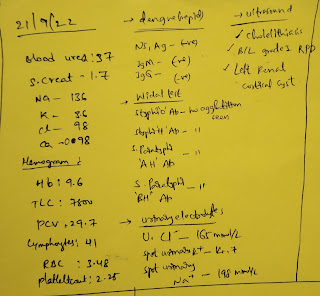 21/9/22
Blood urea: 37
S. Creat - 1.7
Na - 136
K - 3.6
Cl - 98
Ca - 0.98
Hemogram:
Hb: 9.6
TLC: 7800
PCV: 29.7
Lymphocytes: 41
RBC : 3.48
platelet count: 2.25
→ dengue (rapid)
NS1 Ag - (-ve)
IgM - (-ve)
IgG - (-ve)
→ Widal test
S typhi 'O' Ab - no agglutination seen
S typhi 'H' Ab - "
S. Paratyphi 'AH' Ab - "
S. Paratyphi 'BH' Ab - "
→ urinary electrolytes
U. Cl⁻ - 165 mmol/L
spot urinary K+ - 
spot urinary Na+ - 198 mmol/L
→ ultrasound
Cholelithiasis
B/L grade I RPD
Left Renal cortical cyst